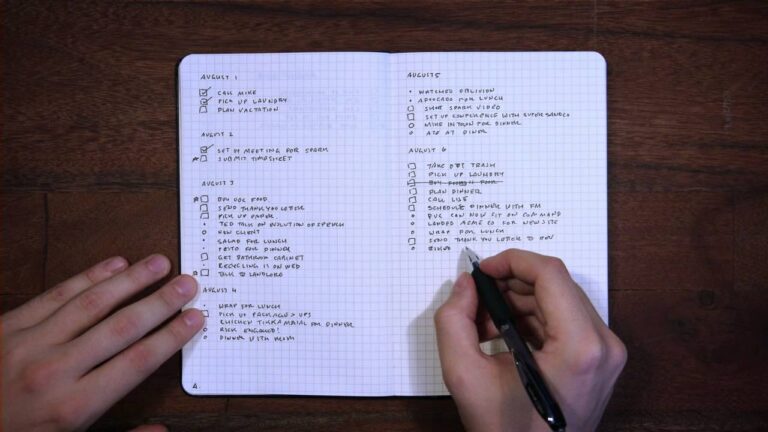 AUGUST 1
CALL MIKE
PICK UP LAUNDRY
PLAN VACTATION
AUGUST 2
SET UP MEETING FOR SPARK
SUBMIT TIMESHEET
AUGUST 3
BUY DOG FOOD
SEND THANK YOU LETTER
PICK UP PAPER
TED TALK ON EVOLUTION OF SPEECH
NEW CLIENT
SALAD FOR LUNCH
PESTO FOR DINNER
GET BATHROOM CABINET
RECYCLING IS ON WED
TALK TO LANDLORD
AUGUST 4
WRAP FOR LUNCH
PICK UP PACKAGE > UPS
CHICKEN TIKKA MASALA FOR DINNER
RICK ENGAGED!
DINNER WITH
4
AUGUST 5
WATCHED OBLIVION
AVOCADO FOR LUNCH
SHOOT SPARK VIDEO
SET UP CONFERENCE WITH
MIKE IN TOWN FOR DINNER
ATE AT DINER
AUGUST 6
TAKE OUT TRASH
PICK UP LAUNDRY
BUY
PLAN DINNER
CALL LISE
SCHEDULE DINNER WITH FM
CAN NOW SIT ON COMMAND
LANDED ACME CO FOR NEW SITE
WRAP FOR LUNCH
SEND THANK YOU LETTER TO BEN
BIKED